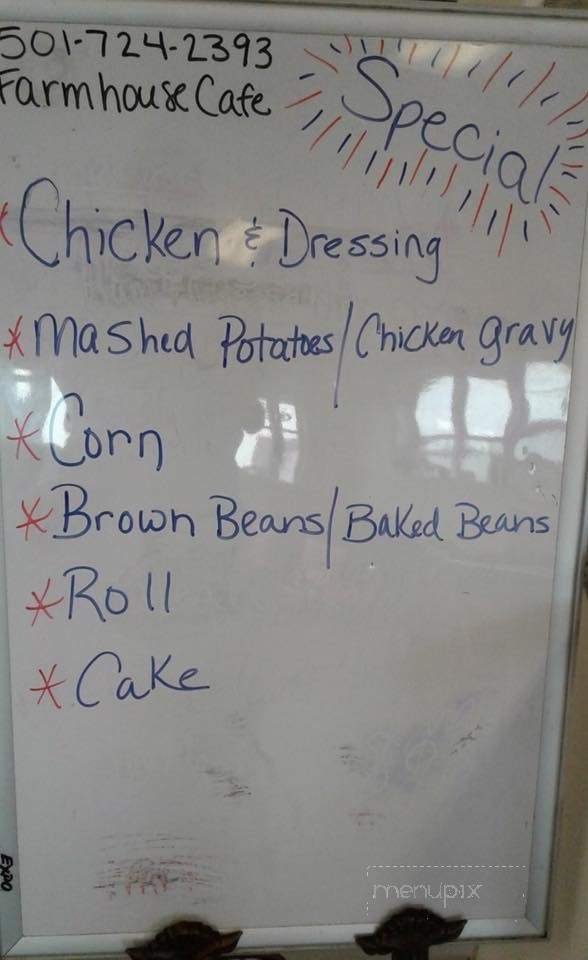 501-724-2393
Farmhouse Cafe
Special
* Chicken & Dressing
* Mashed Potatoes/Chicken gravy
* Corn
* Brown Beans/Baked Beans
* Roll
* Cake
EXPO
menupix